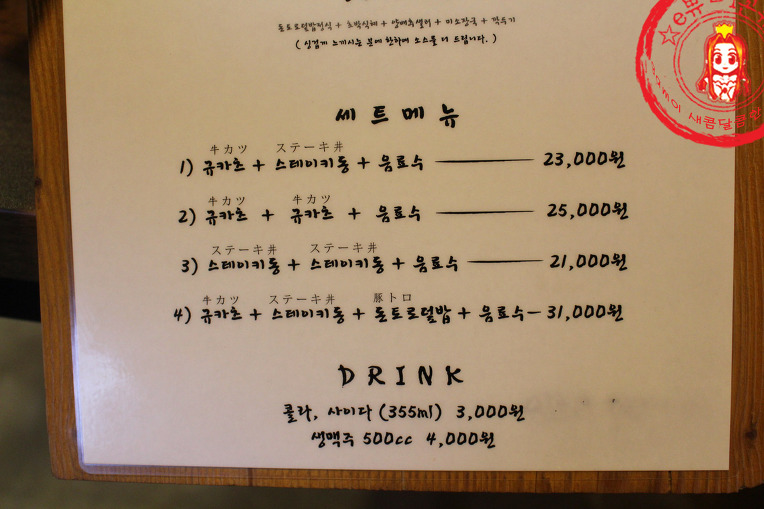 돈토로덮밥정식 + 초밥식혜 + 양배추샐러 + 미소장국 + 깍두기
( 싱겁게 느끼시는 분에 한하여 소스를 더 드립니다. )
세트메뉴
牛カツ ステーキ丼
1) 규카츠 + 스테이키동 + 음료수 23,000원
牛カツ 牛カツ
2) 규카츠 + 규카츠 + 음료수 25,000원
ステーキ丼 ステーキ丼
3) 스테이키동 + 스테이키동 + 음료수 21,000원
牛カツ ステーキ丼 豚トロ
4) 규카츠 + 스테이키동 + 돈토로덮밥 + 음료수 31,000원
DRINK
콜라, 사이다 (355ml) 3,000원
생맥주 500cc 4,000원
새콤달콤